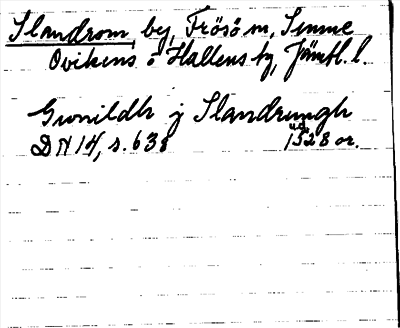 Slandrom, by, Frösö sn, Sunne
Ovikens o Hallens tg, Jämtl. l.
Gunnildh j Slandrungh
DN 14, s. 638 ud 1528 or.